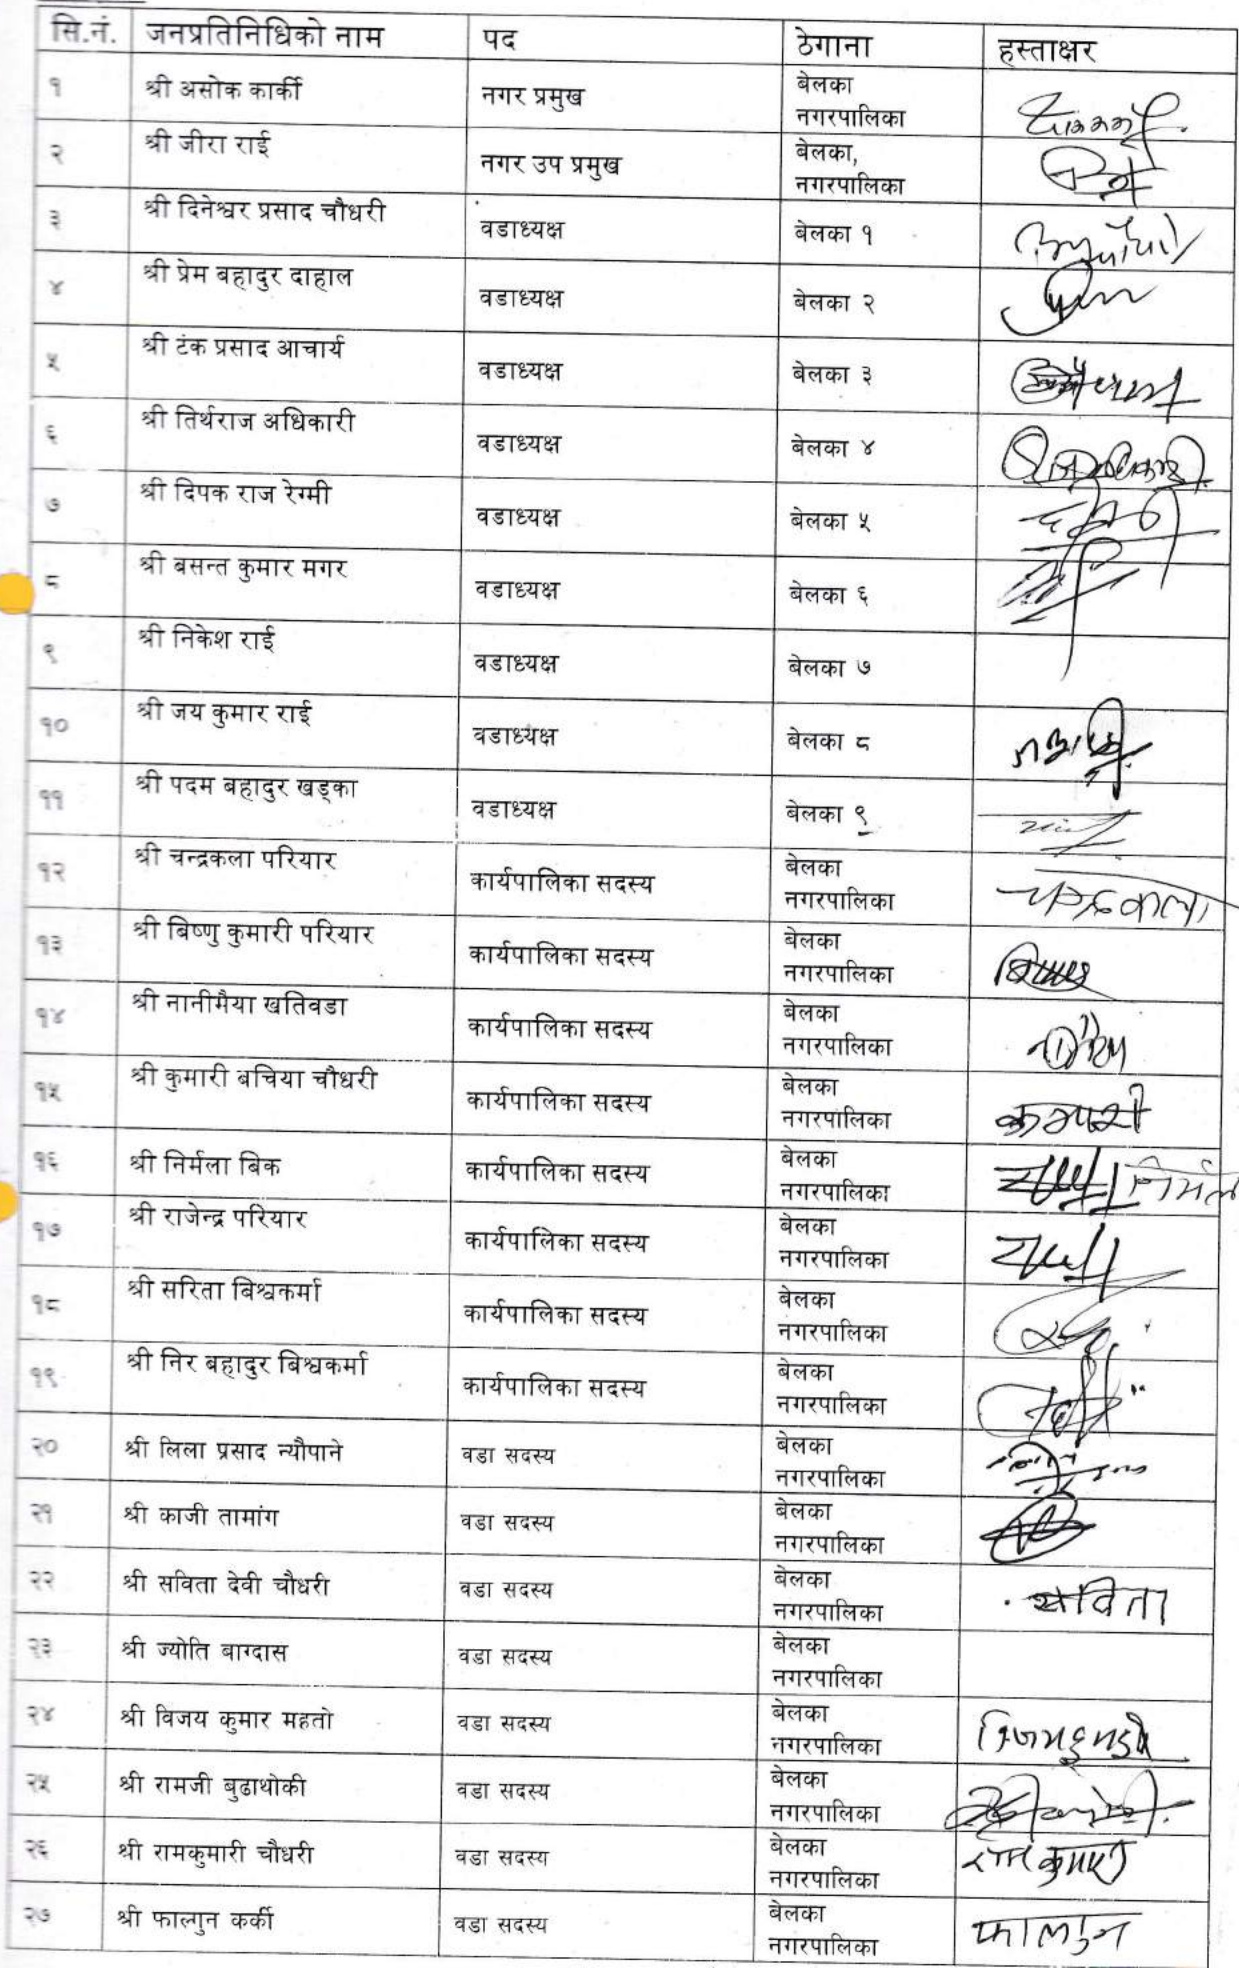 सि.नं. जनप्रतिनिधिको नाम पद ठेगाना हस्ताक्षर
१ श्री असोक कार्की नगर प्रमुख बेलका
नगरपालिका
२ श्री जीरा राई नगर उप प्रमुख बेलका,
नगरपालिका
३ श्री दिनेश्वर प्रसाद चौधरी वडाध्यक्ष बेलका १
४ श्री प्रेम बहादुर दाहाल वडाध्यक्ष बेलका २
५ श्री टंक प्रसाद आचार्य वडाध्यक्ष बेलका ३
६ श्री तिर्थराज अधिकारी वडाध्यक्ष बेलका ४
७ श्री दिपक राज रेग्मी वडाध्यक्ष बेलका ५
८ श्री बसन्त कुमार मगर वडाध्यक्ष बेलका ६
९ श्री निकेश राई वडाध्यक्ष बेलका ७
१० श्री जय कुमार राई वडाध्यक्ष बेलका ८
११ श्री पदम बहादुर खड्का वडाध्यक्ष बेलका ९
१२ श्री चन्द्रकला परियार कार्यपालिका सदस्य बेलका
नगरपालिका चन्द्रकला
१३ श्री बिष्णु कुमारी परियार कार्यपालिका सदस्य बेलका
नगरपालिका
१४ श्री नानीमैया खतिवडा कार्यपालिका सदस्य बेलका
नगरपालिका
१५ श्री कुमारी बचिया चौधरी कार्यपालिका सदस्य बेलका
नगरपालिका
१६ श्री निर्मला बिक कार्यपालिका सदस्य बेलका
नगरपालिका निर्मला
१७ श्री राजेन्द्र परियार कार्यपालिका सदस्य बेलका
नगरपालिका
१८ श्री सरिता बिश्वकर्मा कार्यपालिका सदस्य बेलका
नगरपालिका
१९ श्री निर बहादुर बिश्वकर्मा कार्यपालिका सदस्य बेलका
नगरपालिका
२० श्री लिला प्रसाद न्यौपाने वडा सदस्य बेलका
नगरपालिका
२१ श्री काजी तामांग वडा सदस्य बेलका
नगरपालिका
२२ श्री सविता देवी चौधरी वडा सदस्य बेलका
नगरपालिका सविता
२३ श्री ज्योति बाग्दास वडा सदस्य बेलका
नगरपालिका
२४ श्री विजय कुमार महतो वडा सदस्य बेलका
नगरपालिका
२५ श्री रामजी बुढाथोकी वडा सदस्य बेलका
नगरपालिका
२६ श्री रामकुमारी चौधरी वडा सदस्य बेलका
नगरपालिका रामकुमारी
२७ श्री फाल्गुन कर्की वडा सदस्य बेलका
नगरपालिका फाल्गुन